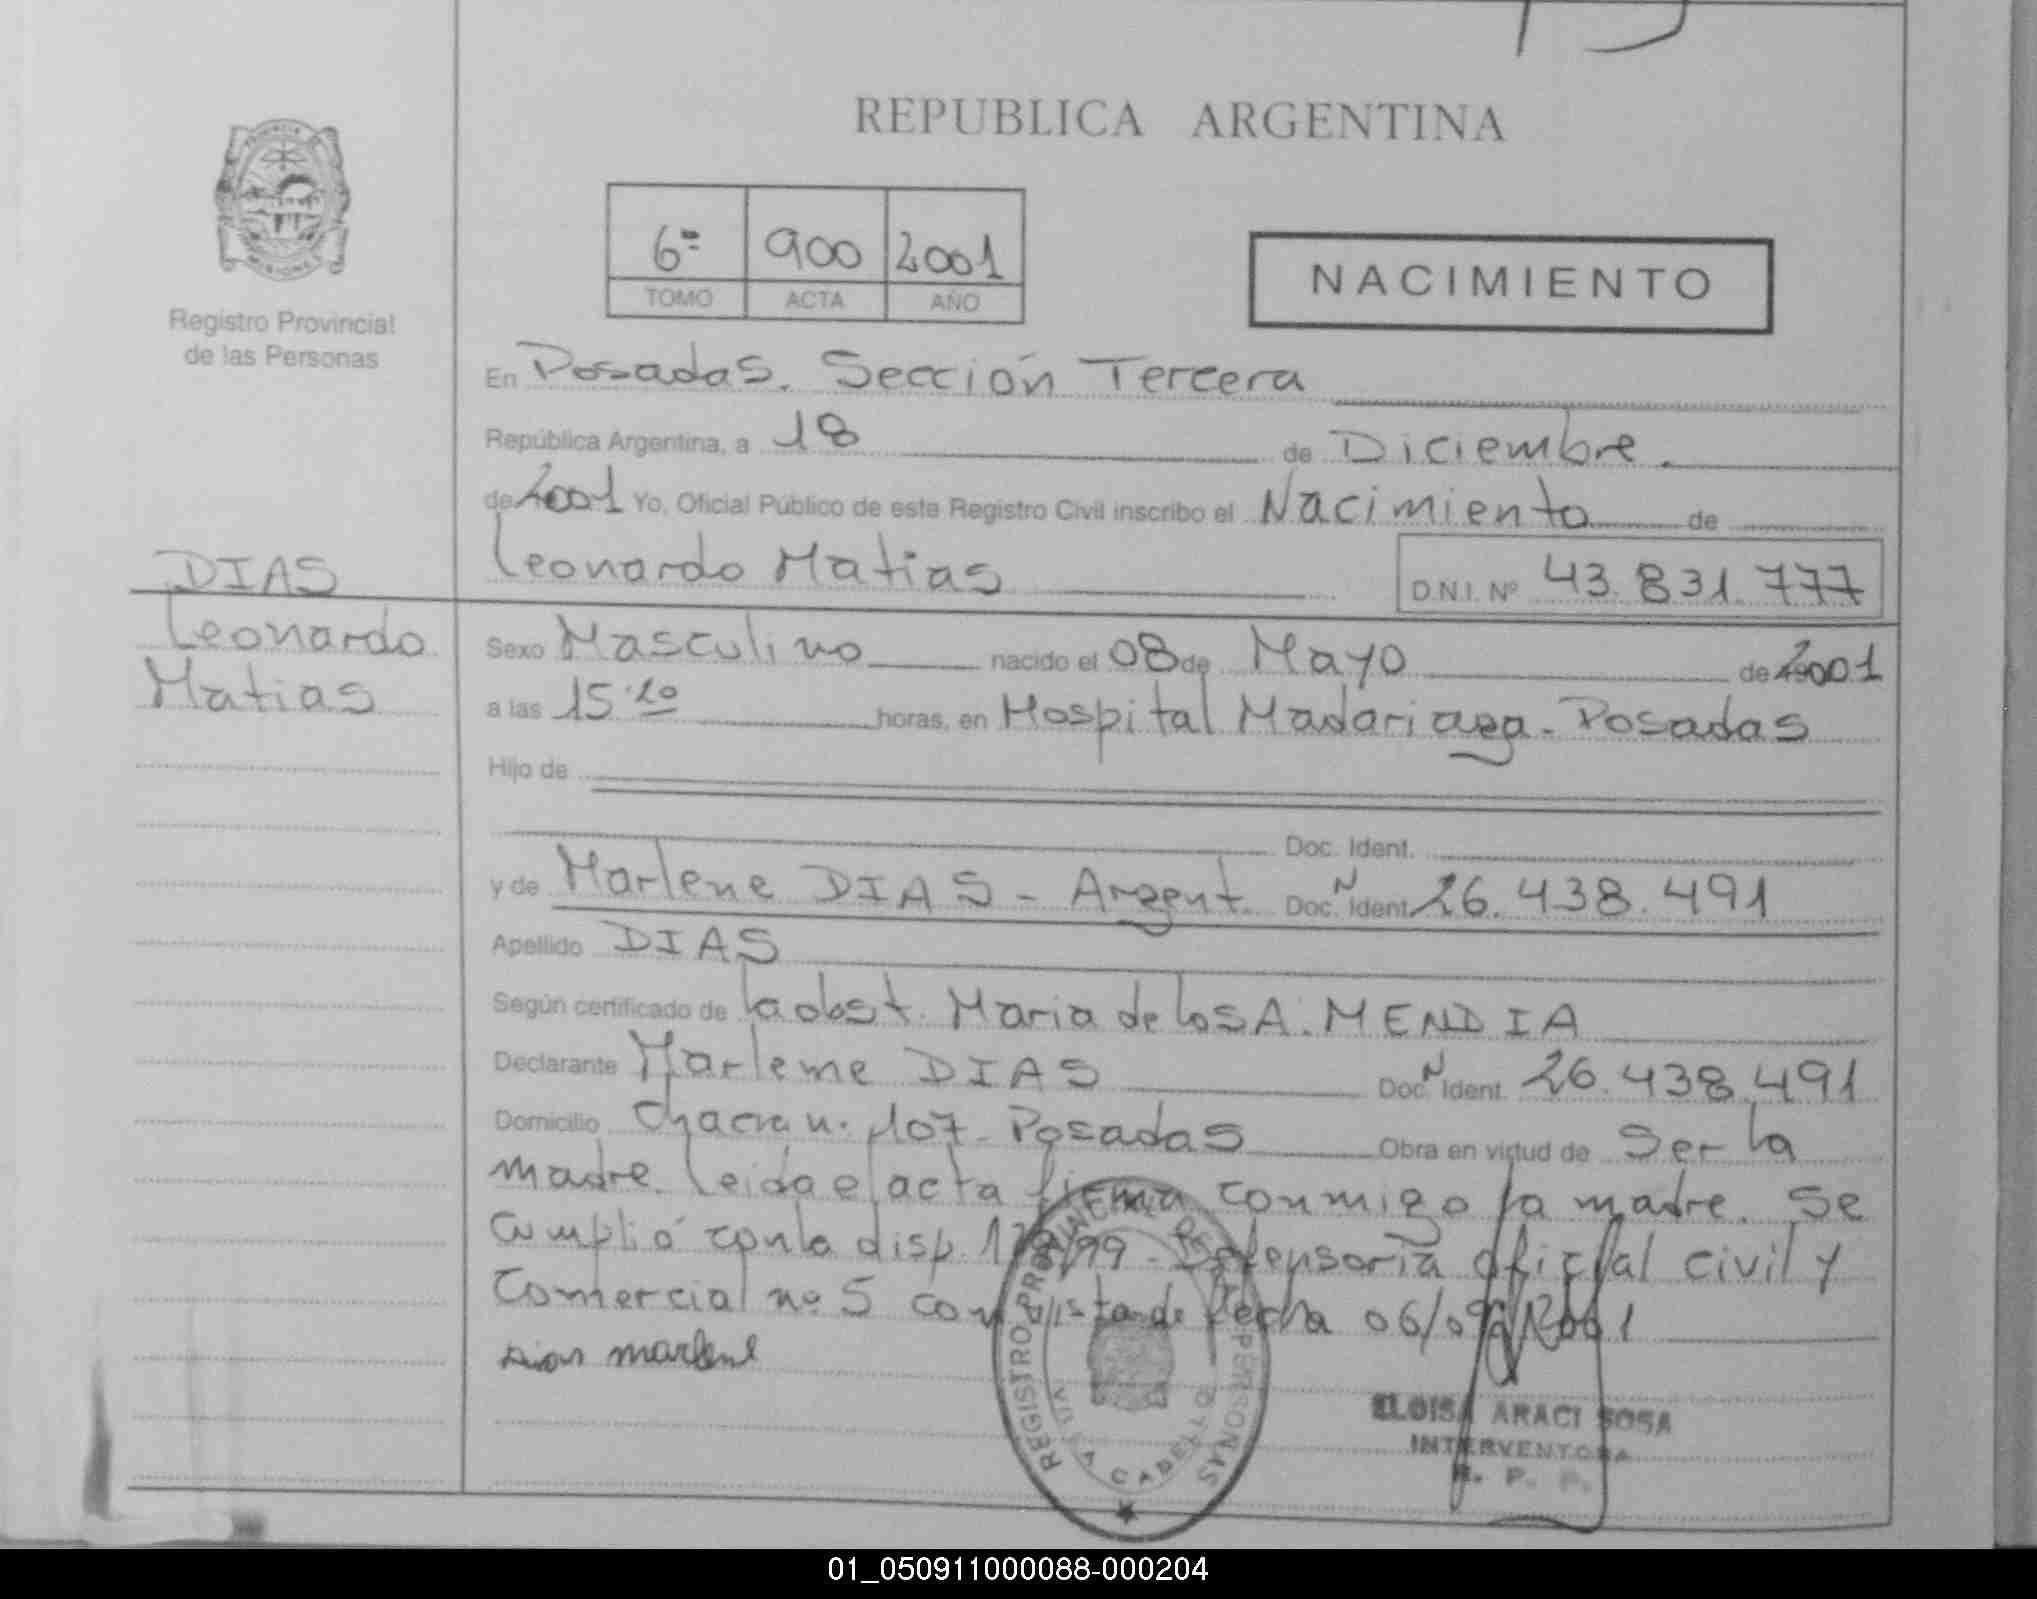 REPUBLICA ARGENTINA
6º 900 2001
TOMO ACTA AÑO
NACIMIENTO
Registro Provincial
de las Personas
En Posadas. Sección Tercera
República Argentina, a 18 de Diciembre.
de 2001 Yo, Oficial Público de este Registro Civil inscribo el Nacimiento de
Leonardo Matias D.N.I. Nº 43.831.777
DIAS
Leonardo
Matias
Sexo Masculino nacido el 08 de Mayo de 2001
a las 15:20 horas, en Hospital Madariaga - Posadas
Hijo de
Doc. Ident.
y de Marlene DIAS - Argent. Doc. N Ident. 26.438.491
Apellido DIAS
Según certificado de la obst. Maria de los A. MENDIA
Declarante Marlene DIAS Doc. N Ident. 26.438.491
Domicilio Chacra n. 107 - Posadas Obra en virtud de Ser la
madre. Leida el acta firma conmigo la madre. Se
cumplió con la disp. Defensoria oficial civil y
Comercial nº 5 con vista de fecha 06/
Dias Marlene
REGISTRO PROVINCIAL DE LAS PERSONAS
VILLA CABELLO
ELOISA ARACI SOSA
INTERVENTORA
R. P. P.
01_050911000088-000204